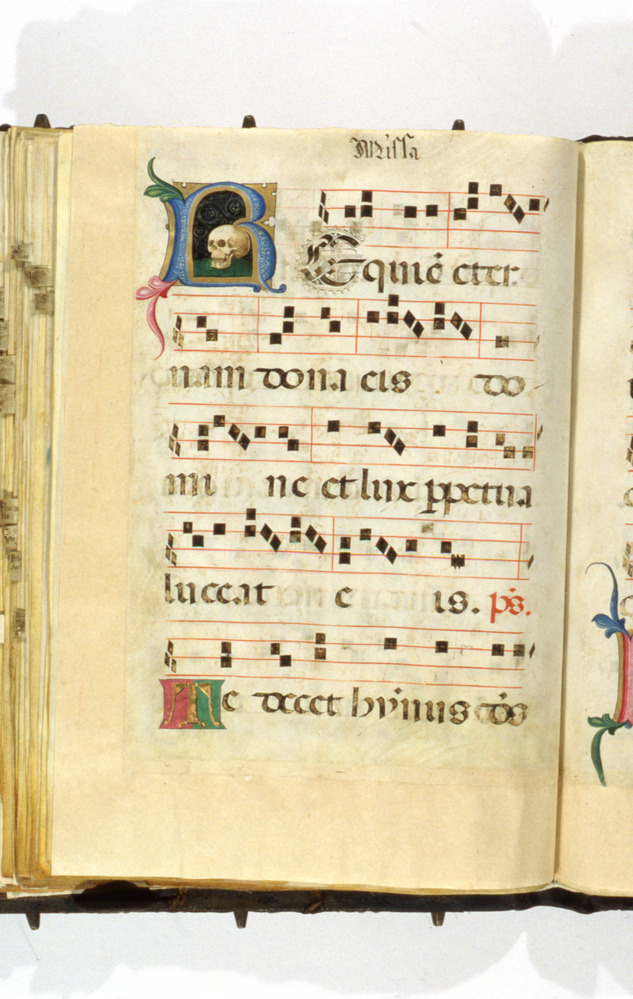 Missa
REquiē eter
nam dona eis do
mi ne et lux ppetua
luceat e is. ps.
Te decet hymnus ds